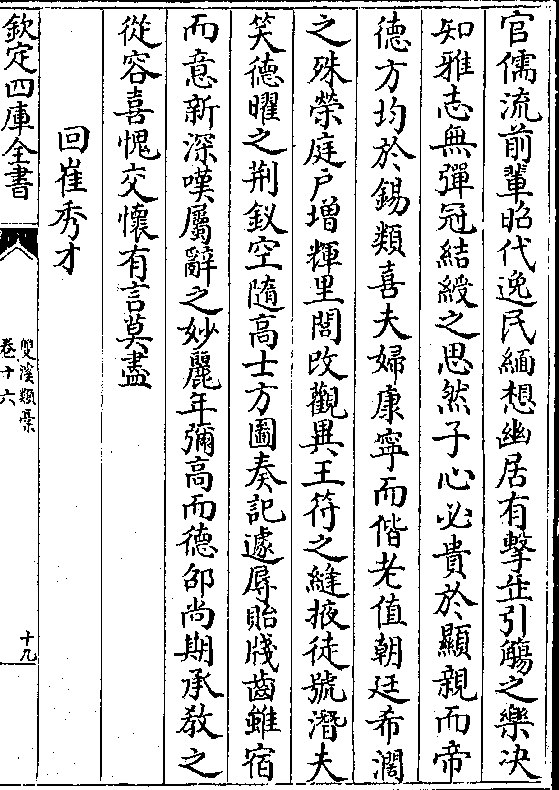 官儒流前輩昭代逸民緬想幽居有擊缶引觴之樂决
知雅志無彈冠結綬之思然子心必貴於顯親而帝
德方均於錫類喜夫婦康寧而偕老值朝廷希濶
之殊榮庭户增輝里閭改觀異王符之縫掖徒號潛夫
笑德曜之荆釵空隨高士方圖奏記遽辱貽牋齒雖宿
而意新深嘆屬辭之妙麗年彌高而德卲尚期承教之
從容喜愧交懷有言莫盡
回崔秀才
欽定四庫全書
雙溪類槀
卷十六
十九